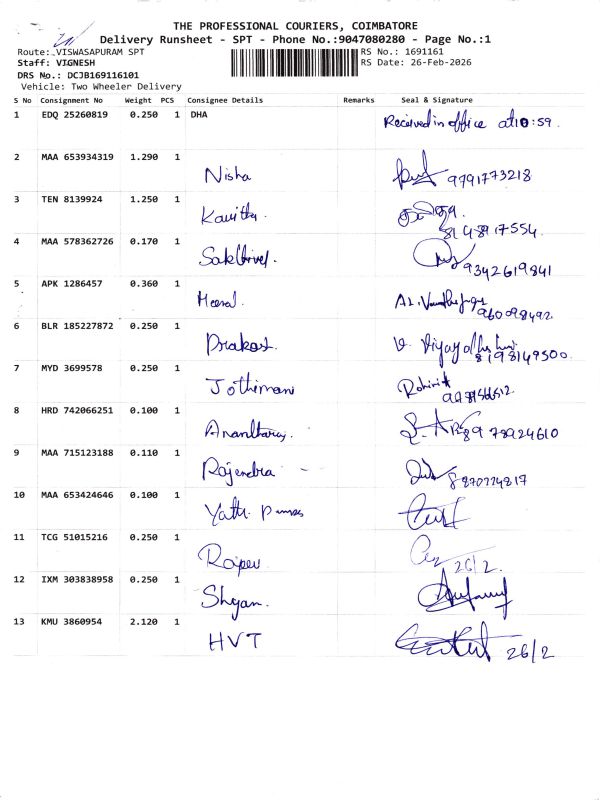 THE PROFESSIONAL COURIERS, COIMBATORE
Delivery Runsheet - SPT - Phone No.:9047080280 - Page No.:1
Route: VISWASAPURAM SPT RS No.: 1691161
Staff: VIGNESH RS Date: 26-Feb-2026
DRS No.: DCJB169116101
Vehicle: Two Wheeler Delivery
S No Consignment No Weight PCS Consignee Details Remarks Seal & Signature
1 EDQ 25260819 0.250 1 DHA Received in office at 10:59.
2 MAA 653934319 1.290 1 Nisha 9791773218
3 TEN 8139924 1.250 1 Kavitha
4 MAA 578362726 0.170 1 Sakthivel 9342619841
5 APK 1286457 0.360 1
6 BLR 185227872 0.250 1 Prakash 8198149500
7 MYD 3699578 0.250 1 Jothimani Rohini
8 HRD 742066251 0.100 1 8978924610
9 MAA 715123188 0.110 1 Rajendra 8870224817
10 MAA 653424646 0.100 1
11 TCG 51015216 0.250 1 26/2.
12 IXM 303838958 0.250 1 Shyam.
13 KMU 3860954 2.120 1 HVT 26/2